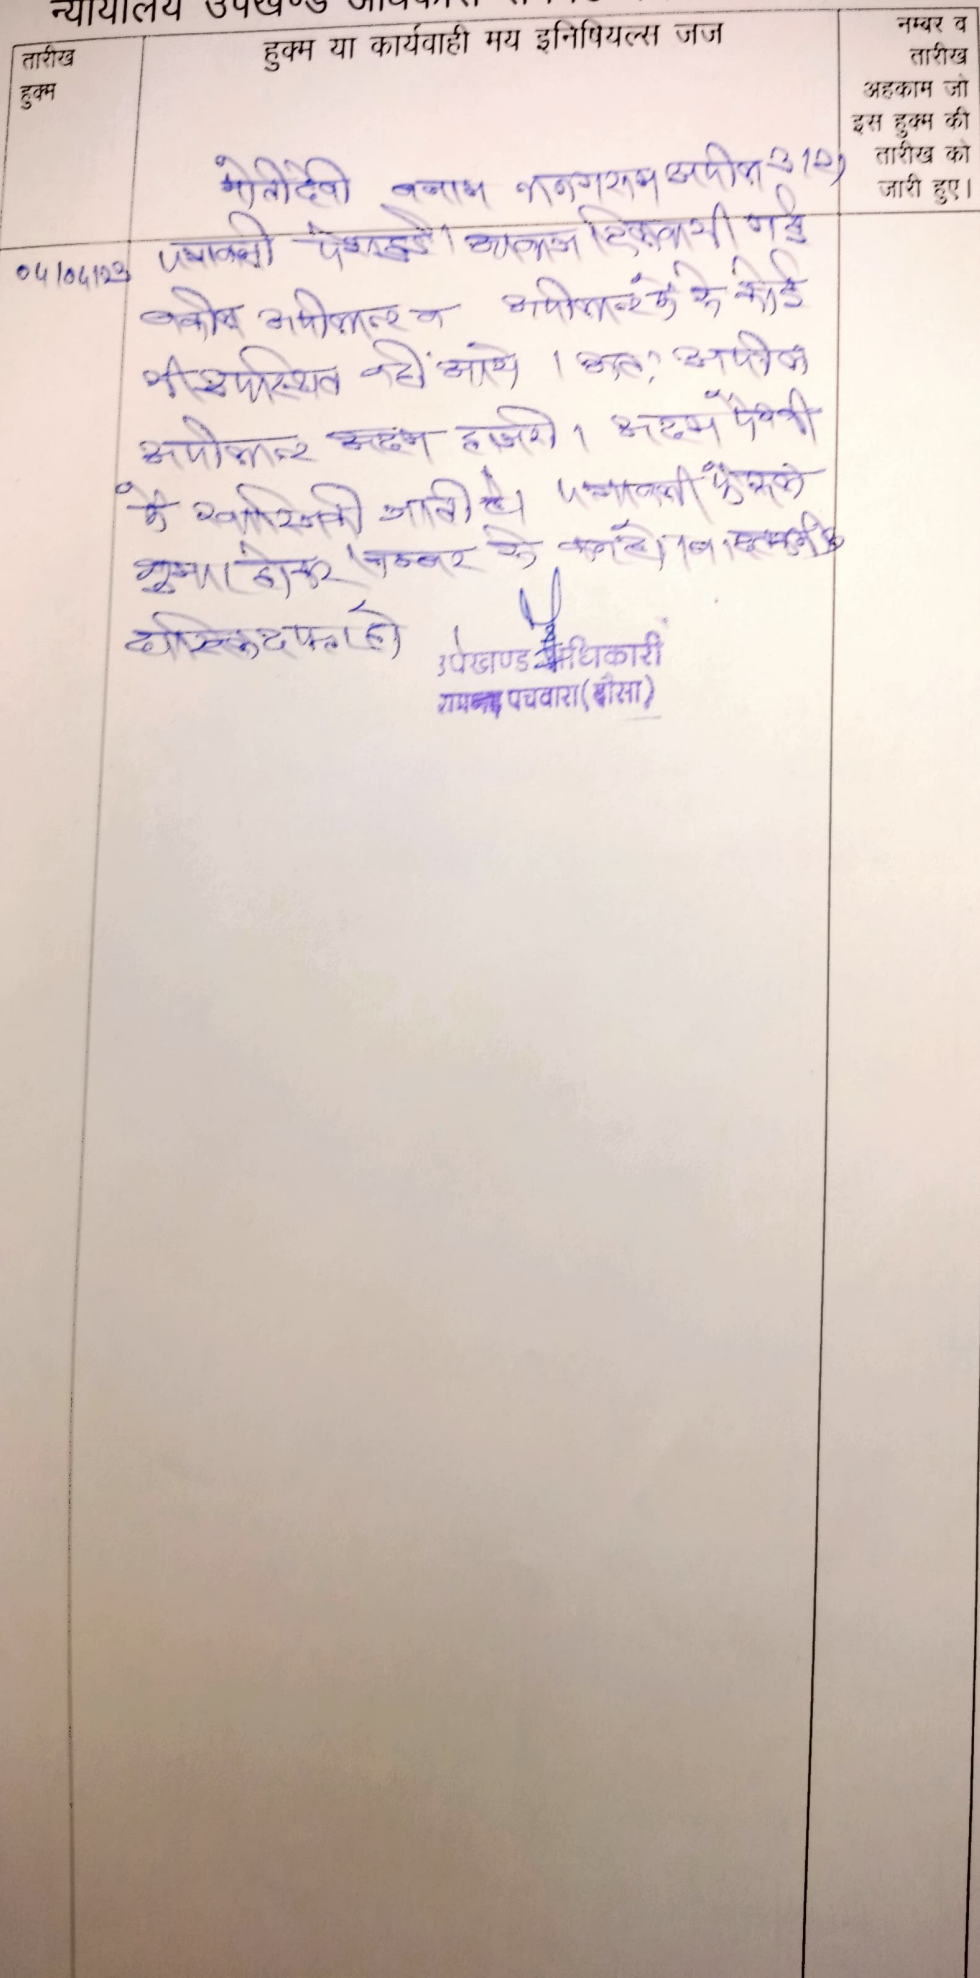 न्यायालय उपखण्ड अधिकारी
तारीख
हुक्म
हुक्म या कार्यवाही मय इनिषियल्स जज
नम्बर व
तारीख
अहकाम जो
इस हुक्म की
तारीख को
जारी हुए।
04/04/23
मोतीदेवी बनाम अपील 212)
पत्रावली पेश हुई। आवाज दिलवायी गई
वकील अपीलान्ट व अपीलान्ट में से कोई
भी उपस्थित नहीं आये । अतः अपील
अपीलान्ट अदम हाजरी । अदम पैरवी
में खारिज की जाती है। पत्रावली फैसले
शुमार होकर नम्बर से कम हो।
दाखिल दफ्तर हो
उपखण्ड अधिकारी
रामगढ़ पचवारा (दौसा)